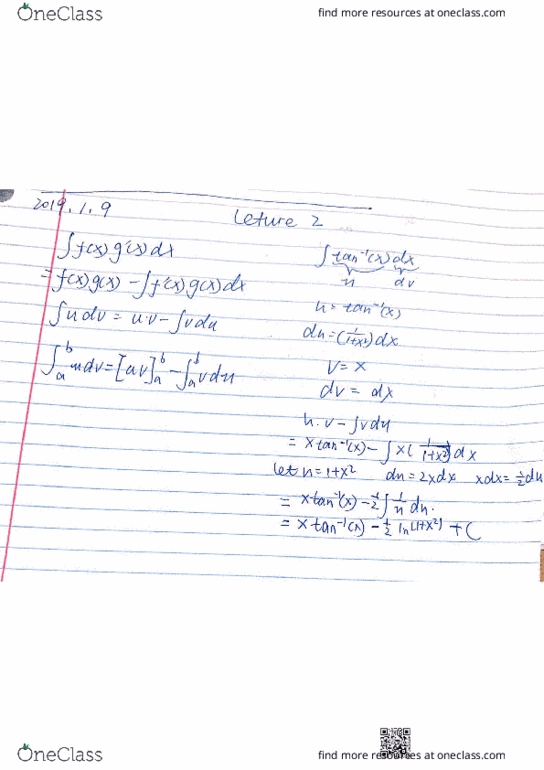 OneClass
find more resources at oneclass.com
2019.1.9
Leture 2
∫f(x)g'(x)dx
= f(x)g(x) - ∫f'(x)g(x)dx
∫udv = u·v - ∫vdu
∫ₐᵇudv = [uv]ₐᵇ - ∫ₐᵇvdu
∫tan⁻¹(x)dx
u dv
u = tan⁻¹(x)
du = (1/1+x²)dx
V = x
dv = dx
u·v - ∫vdu
= xtan⁻¹(x) - ∫x(1/1+x²)dx
let u = 1+x² du = 2xdx xdx = ½du
= xtan⁻¹(x) - ½∫1/u du.
= xtan⁻¹(x) - ½ ln(1+x²) + C
OneClass
find more resources at oneclass.com